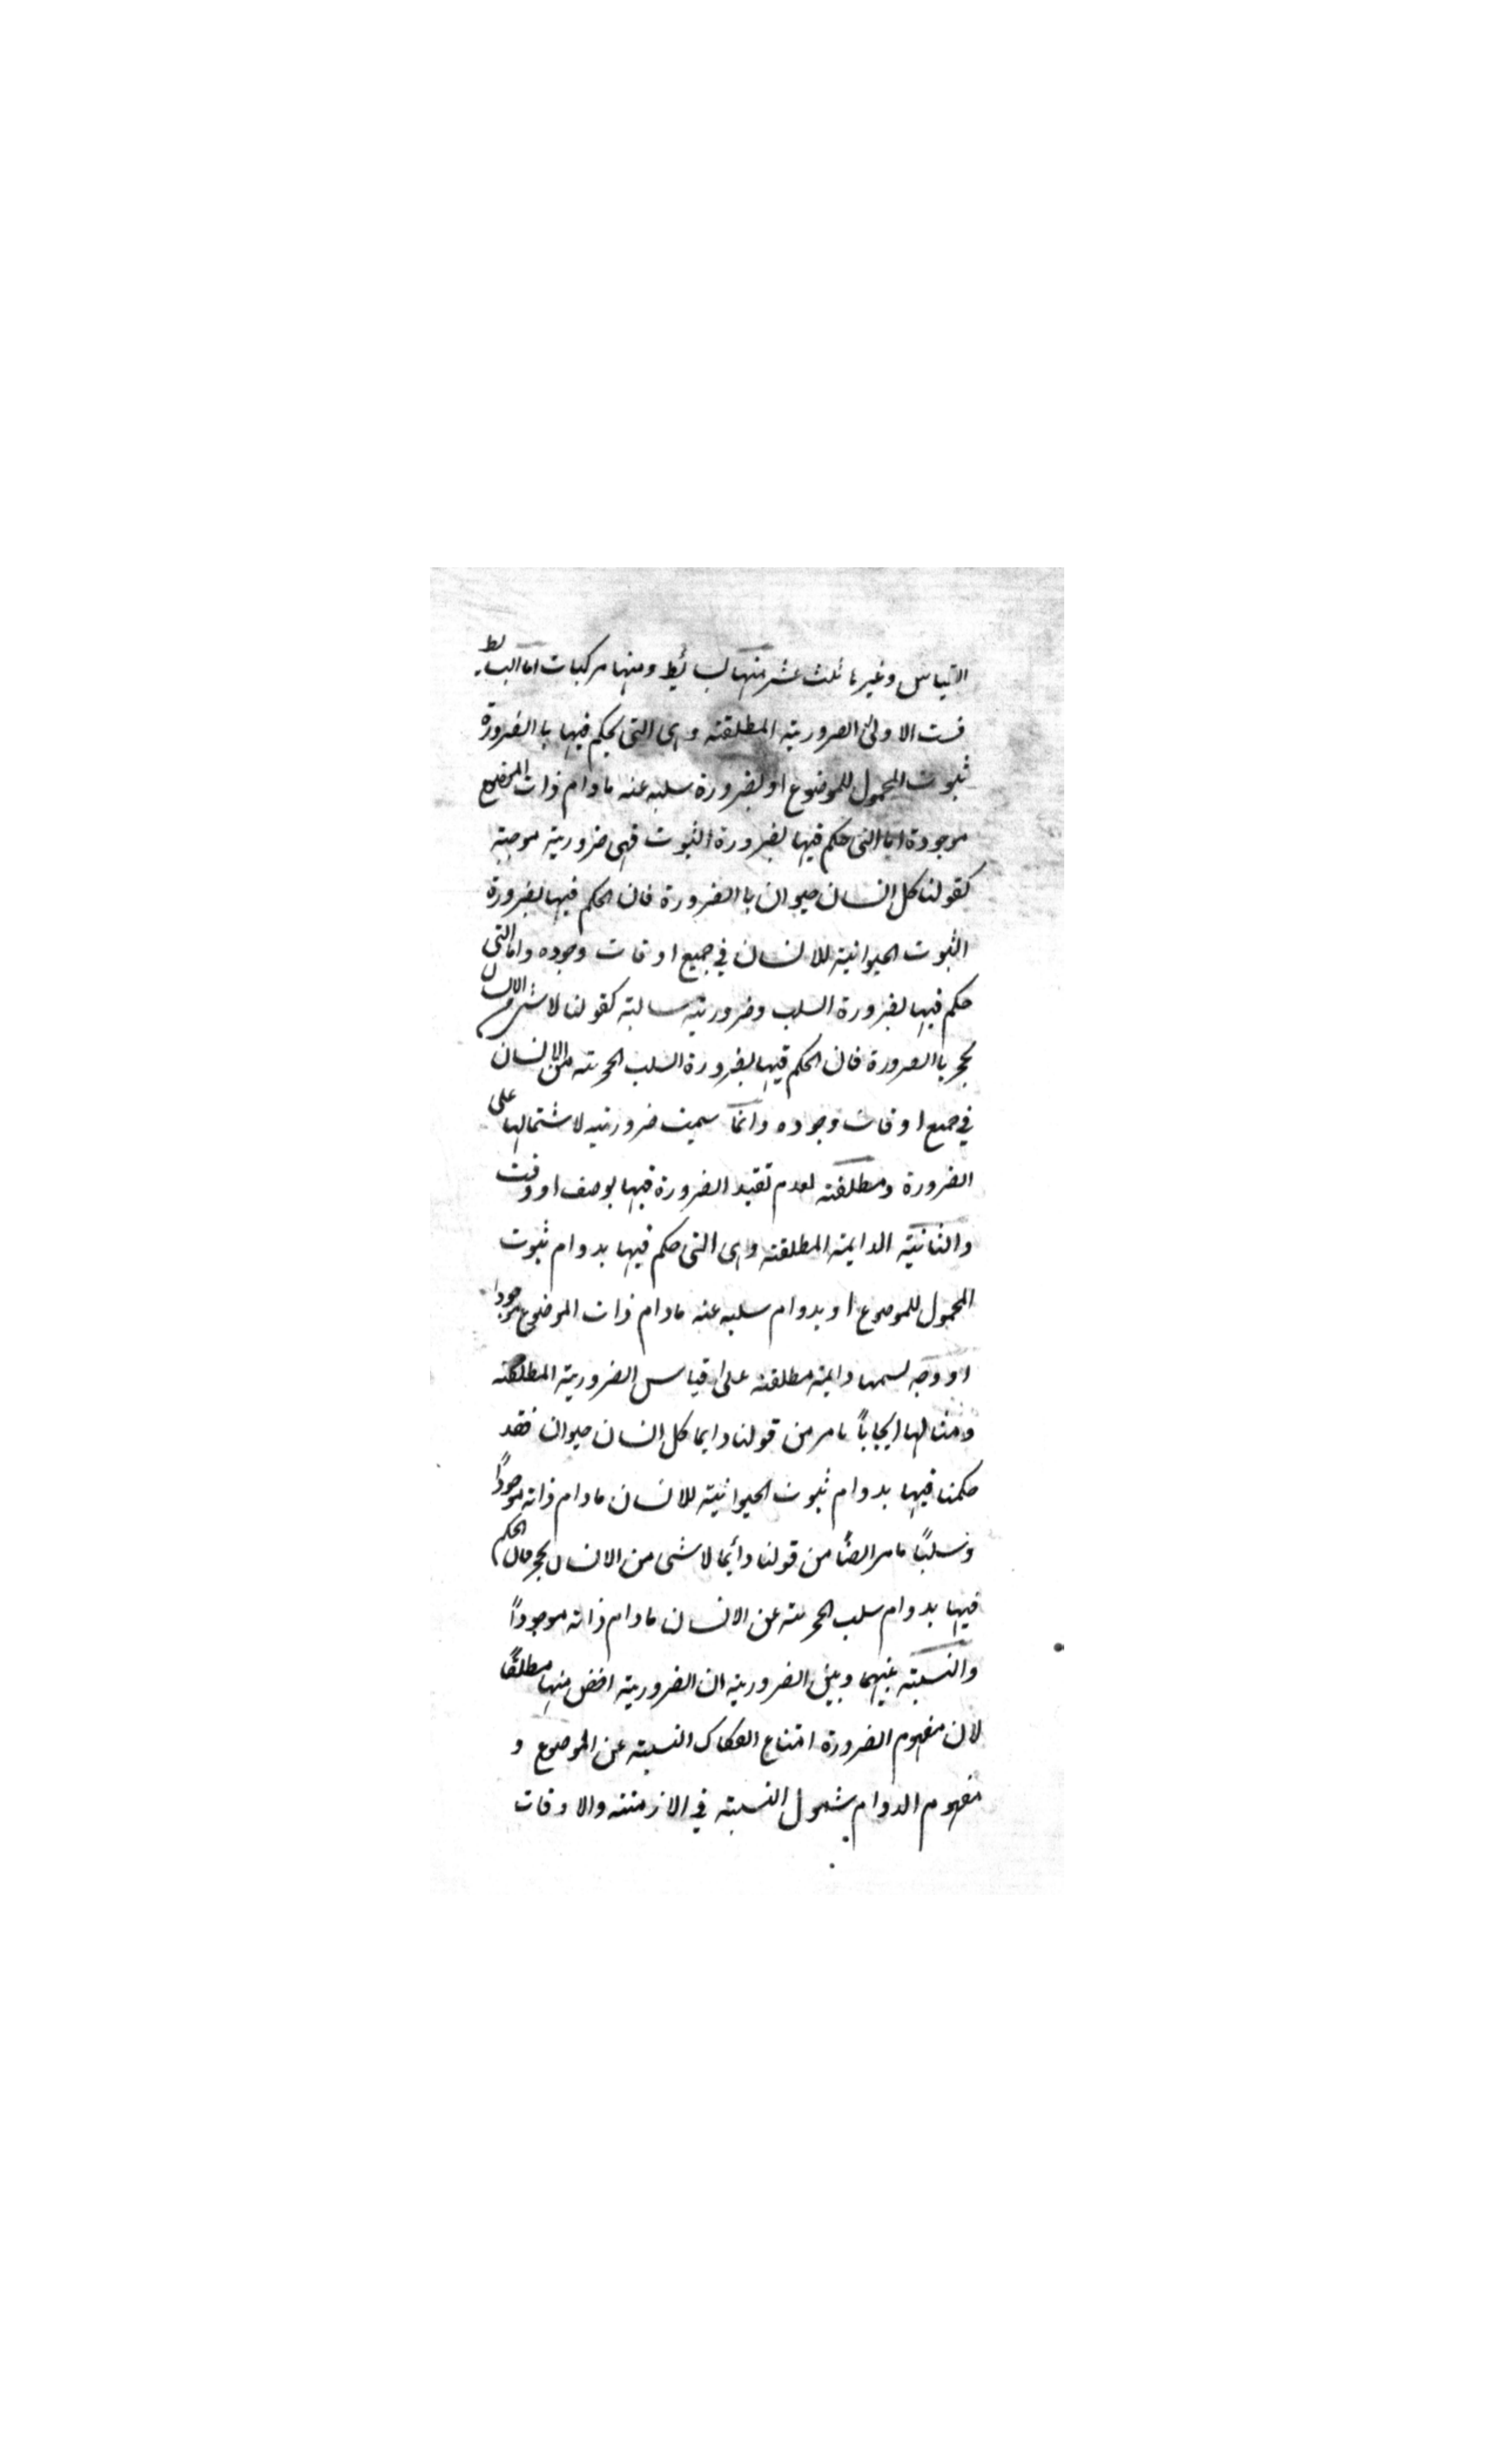 القياس وغيرها ثلث عشر منها بسائط ومنها مركبات اما البسائط
فست الاولى الضرورية المطلقة وهى التى يحكم فيها با الضرورة
ثبوت المحمول للموضوع او بضرورة سلبه عنه مادام ذات الموضوع
موجودة اما التى حكم فيها بضرورة الثبوت فهى ضرورية موجبة
كقولنا كل انسان حيوان با الضرورة فان الحكم فيها بضرورة
الثبوت الحيوانية للانسان فى جميع اوقات وجوده واما التى
حكم فيها بضرورة السلب وضرورية سالبة كقولنا لا شى من الانسان
بحجر با الضرورة فان الحكم فيها بضرورة السلب الحجرية من الانسان
فى جميع اوقات وجوده وانما سميت ضرورية لاشتمالها على
الضرورة ومطلقة لعدم تقيد الضرورة فيها بوصف او وقت
والثانية الدايمة المطلقة وهى التى حكم فيها بدوام ثبوت
المحمول للموضوع او بدوام سلبه عنه مادام ذات الموضوع موجودا
او وجه دايمة مطلقة على قياس الضرورية المطلقة
ومثالها ايجاباً مامر من قولنا دايما كل انسان حيوان فقد
حكمنا فيها بدوام ثبوت الحيوانية للانسان مادام ذاته موجوداً
وسلباً مامر ايضاً من قولنا دائما لا شى من الانسان بحجر فان الحكم
فيها بدوام سلب الحجرية عن الانسان مادام ذاته موجوداً
والنسبة بينها وبين الضرورية ان الضرورية اخص منها مطلقاً
لان مفهوم الضرورة امتناع انفكاك النسبة عن الموضوع و
مفهوم الدوام شمول النسبة فى الازمنة والاوقات